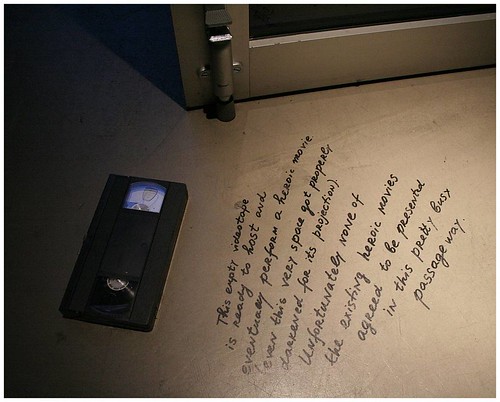 This empty videotape
is ready to host and
eventually perform a heroic movie
even this very space got properly
darkened for its projection).
Unfortunately none of
the existing heroic movies
agreed to be presented
in this pretty busy
passageway.